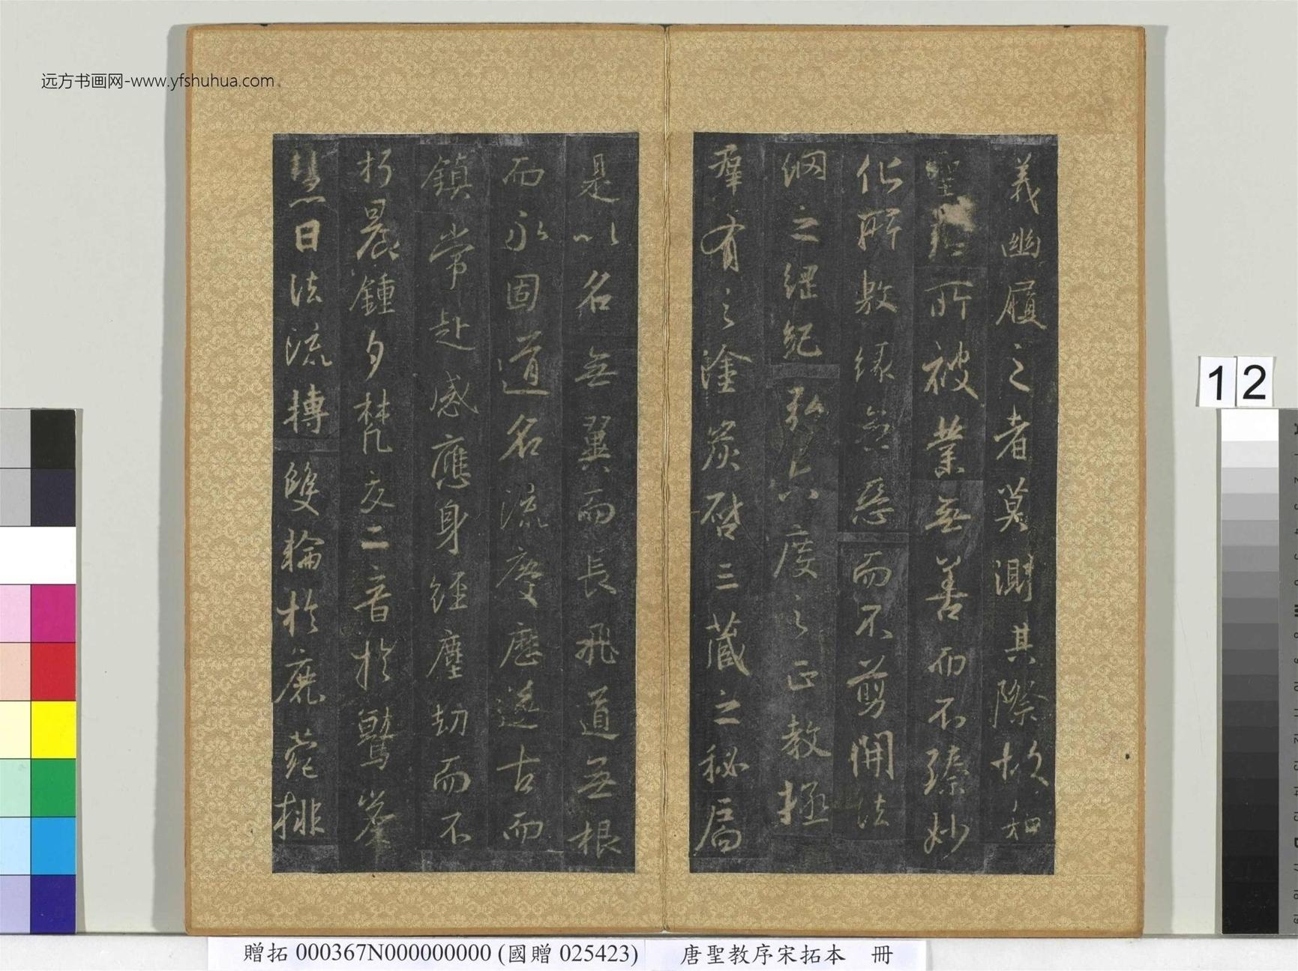 远方书画网-www.yfshuhua.com
義幽履之者莫測其際故知
聖慈所被業無善而不臻妙
化所敷緣無惡而不剪開法
網之綱紀弘六度之正教拯
群有之塗炭啓三藏之秘扃
是以名無翼而長飛道無根
而永固道名流慶歷遂古而
鎮常赴感應身經塵劫而不
朽晨鍾夕梵交二音於鷲峯
慧日法流轉雙輪於鹿菀排
12
贈拓 000367N000000000 (國贈 025423)
唐聖教序宋拓本 冊